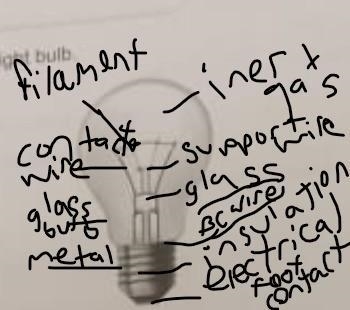 ght bulb
filament
inert
gas
contact
wire
support wire
glass
glass
BC wire
insulation
metal
electrical
foot
contact